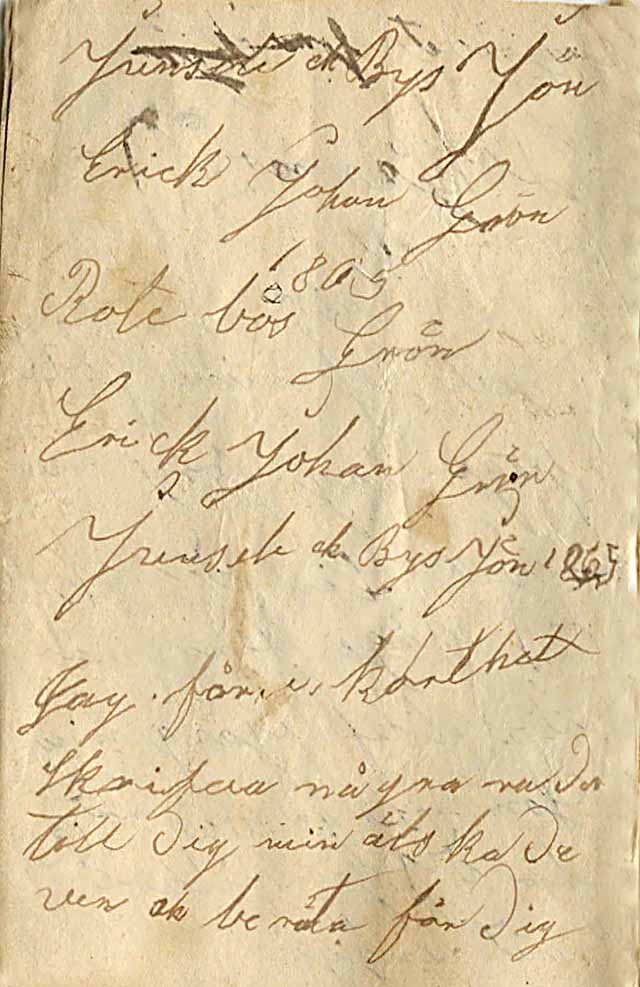 Jrensele ok Bys Jön
Erick Johan Grön
1865
Rote bos Grön
Erick Johan Grön
Jrensele ok Bys Jön 1865
Jag får i korthet
Skrifaa några rader
till dig min älskade
ven ok beräta för dig